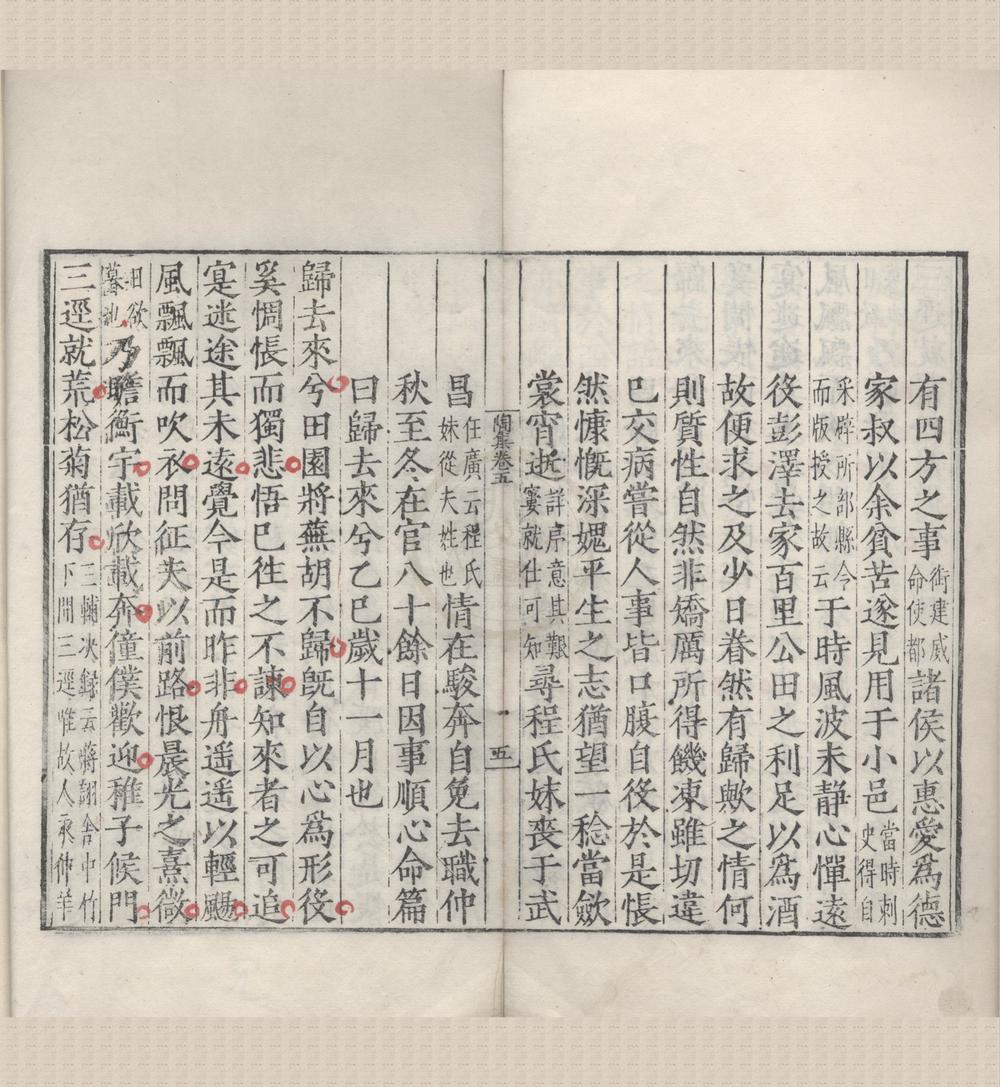 有四方之事銜建威命使都諸侯以惠愛爲德
家叔以余貧苦遂見用于小邑當時刺史得自
采辟所部縣令而版授之故云于時風波未静心憚遠
役彭澤去家百里公田之利足以爲酒
故便求之及少日眷然有歸歟之情何
則質性自然非矯厲所得饑凍雖切違
已交病嘗從人事皆口腹自役於是悵
然慷慨深媿平生之志猶望一稔當歛
裳宵逝詳序意其艱窶就仕可知尋程氏妹喪于武
陶集卷五
五
昌任廣云程氏妹從夫姓也情在駿奔自免去職仲
秋至冬在官八十餘日因事順心命篇
曰歸去來兮乙巳歲十一月也
歸去來兮田園將蕪胡不歸旣自以心爲形役
奚惆悵而獨悲悟已徃之不諫知來者之可追
寔迷途其未遠覺今是而昨非舟遥遥以輕颺
風飄飄而吹衣問征夫以前路恨晨光之熹微
日欲暮也乃瞻衡宇載欣載奔僮僕歡迎稚子候門
三逕就荒松菊猶存三輔决録云蔣詡舍中竹下開三逕唯故人求仲羊